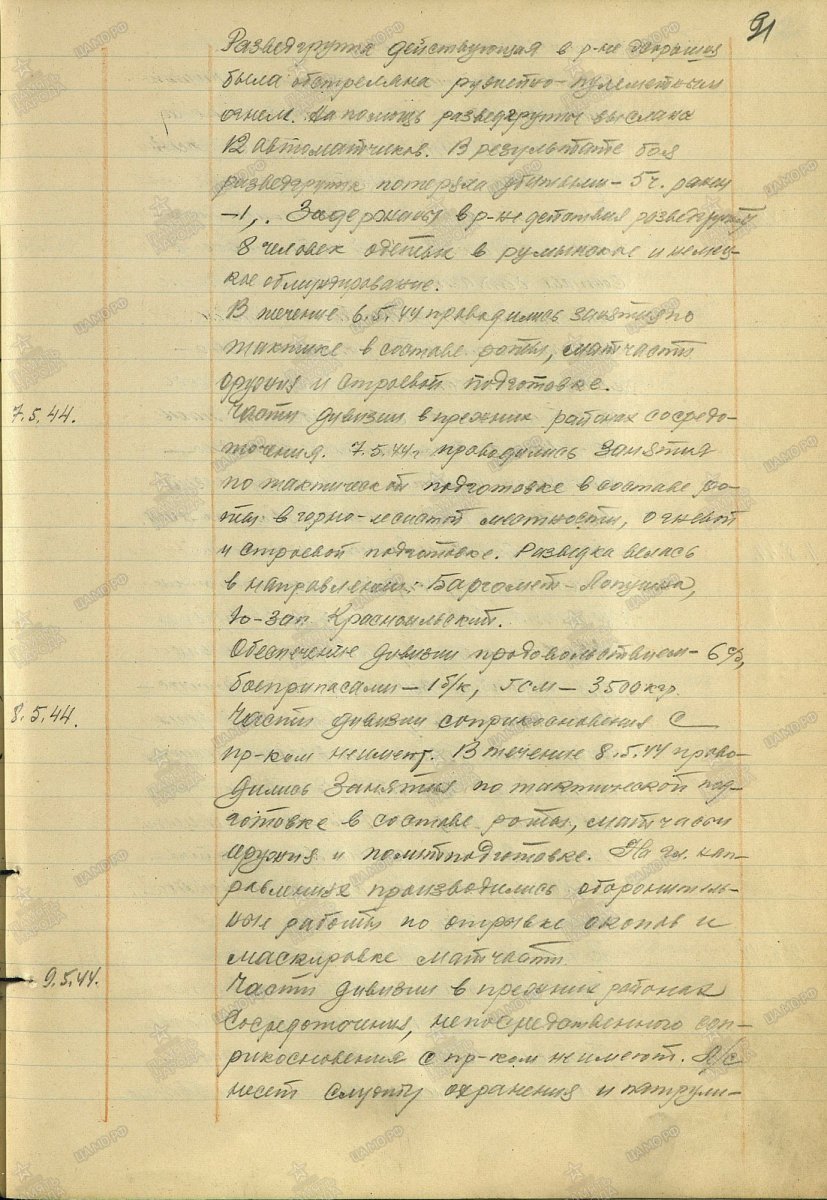 91
Разведгруппа действующая в р-не
была обстреляна ружейно-пулеметным
огнем. На помощь разведгруппе выслана
12 автоматчиков. В результате боя
разведгруппа потеряла убитыми – 5 ч. ранен
– 1,. Задержаны в р-не действия разведгруппы
8 человек одетых в румынское и немец-
кое обмундирование.
В течение 6.5.44 проводились занятия по
тактике в составе роты, матчасти
оружия и строевой подготовке.
7.5.44. Части дивизии в прежних районах сосредо-
точения. 7.5.44г проводились занятия
по тактической подготовке в составе ро-
ты в горно-лесистой местности, огневой
и строевой подготовке. Разведка велась
в направлении: Баргомет – Лопушна,
Ю-зап Красноильский.
Обеспечение дивизии продовольствием – 6 с/д,
боеприпасами – 1 б/к, ГСМ – 3500 кгр.
8.5.44. Части дивизии соприкосновения с
пр-ком не имеют. В течение 8.5.44 прово-
дились занятия по тактической под-
готовке в составе роты, матчасти
оружия и политподготовке. На гл. нап-
равлениях производились оборонитель-
ные работы по отрывке окопов и
маскировке матчасти
9.5.44. Части дивизии в прежних районах
сосредоточения, непосредственного соп-
рикосновения с пр-ком не имеют. Л/с
несет службу охранения и патрули-